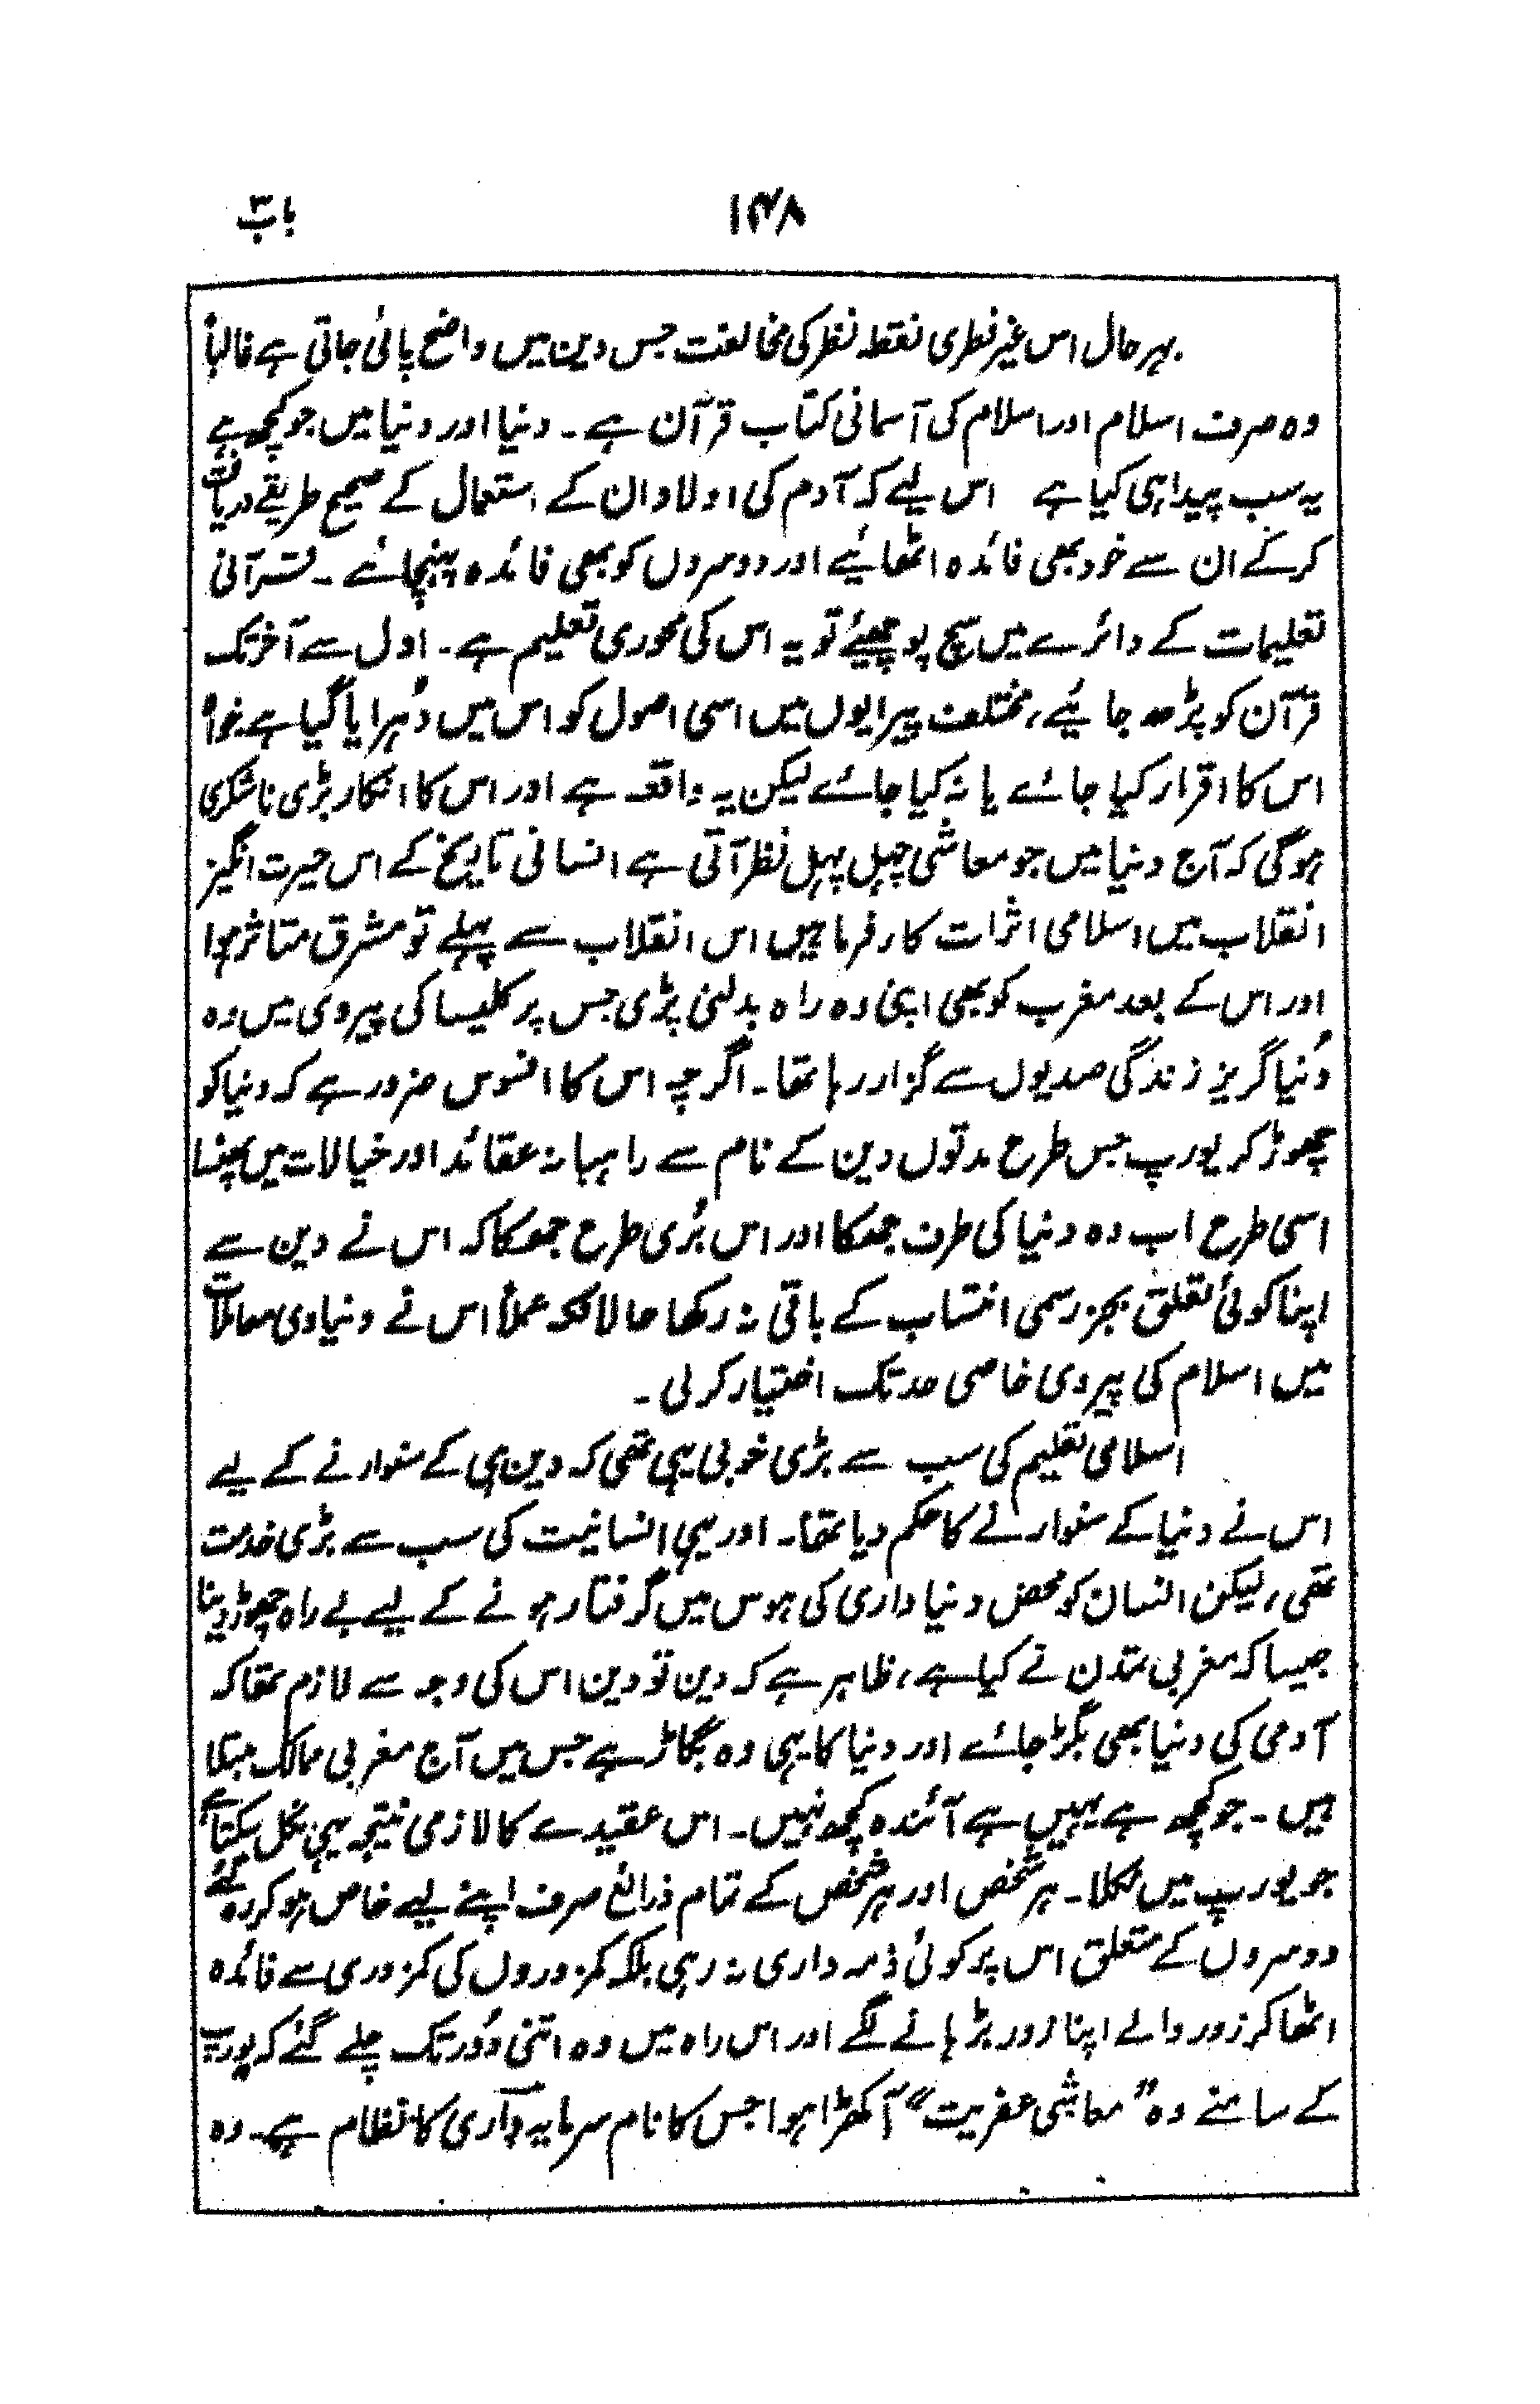 باب ۳
۱۴۸
بہرحال اس غیر فطری نقطہ نظر کی مخالفت جس دین میں واضح پائی جاتی ہے غالباً
وہ صرف اسلام اور اسلام کی آسمانی کتاب قرآن ہے ۔ دنیا اور دنیا میں جو کچھ ہے
یہ سب پیدا ہی کیا ہے اس لیے کہ آدم کی اولاد ان کے استعمال کے صحیح طریقے دریافت
کر کے ان سے خود بھی فائدہ اٹھائیے اور دوسروں کو بھی فائدہ پہنچائے ۔ قرآنی
تعلیمات کے دائرے میں سچ پوچھیئے تو یہ اس کی محوری تعلیم ہے ۔ اول سے آخر تک
قرآن کو پڑھ جائیے، مختلف پیرایوں میں اسی اصول کو اس میں دُہرایا گیا ہے خواہ
اس کا اقرار کیا جائے یا نہ کیا جائے لیکن یہ واقعہ ہے اور اس کا انکار بڑی ناشکری
ہوگی کہ آج دنیا میں جو معاشی چہل پہل نظر آتی ہے انسانی تاریخ کے اس حیرت انگیز
انقلاب میں اسلامی اثرات کارفرما ہیں اس انقلاب سے پہلے تو مشرق متاثر ہوا
اور اس کے بعد مغرب کو بھی اپنی وہ راہ بدلنی پڑی جس پر کلیسا کی پیروی میں وہ
دُنیا گریز زندگی صدیوں سے گزار رہا تھا ۔ اگرچہ اس کا افسوس ضرور ہے کہ دنیا کو
چھوڑ کر یورپ جس طرح مدتوں دین کے نام سے راہبانہ عقائد اور خیالات میں پھنسا
اسی طرح اب وہ دنیا کی طرف جھکا اور اس بُری طرح جھکا کہ اس نے دین سے
اپنا کوئی تعلق بجز رسمی انتساب کے باقی نہ رکھا حالانکہ عملاً اس نے دنیاوی معاملات
میں اسلام کی پیروی خاصی حد تک اختیار کر لی ۔
اسلامی تعلیم کی سب سے بڑی خوبی یہی تھی کہ دین ہی کے سنوارنے کے لیے
اس نے دنیا کے سنوارنے کا حکم دیا تھا ۔ اور یہی انسانیت کی سب سے بڑی خدمت
تھی، لیکن انسان کو محض دنیا داری کی ہوس میں گرفتار ہونے کے لیے بے راہ چھوڑ دینا
جیسا کہ مغربی تمدن نے کیا ہے، ظاہر ہے کہ دین تو دین اس کی وجہ سے لازم تھا کہ
آدمی کی دنیا بھی بگڑ جائے اور دنیا کا یہی وہ بگاڑ ہے جس میں آج مغربی ممالک مبتلا
ہیں ۔ جو کچھ ہے یہیں ہے آئندہ کچھ نہیں ۔ اس عقیدے کا لازمی نتیجہ یہی نکل سکتا ہے
جو یورپ میں نکلا ۔ ہر شخص اور ہر شخص کے تمام ذرائع صرف اپنے لیے خاص ہو کر رہ گئے
دوسروں کے متعلق اس پر کوئی ذمہ داری نہ رہی بلکہ کمزوروں کی کمزوری سے فائدہ
اٹھا کر زور والے اپنا زور بڑہانے لگے اور اس راہ میں وہ اتنی دُور تک چلے گئے کہ یورپ
کے سامنے وہ "معاشی عفریت" آ کھڑا ہوا جس کا نام سرمایہ داری کا نظام ہے ۔ وہ